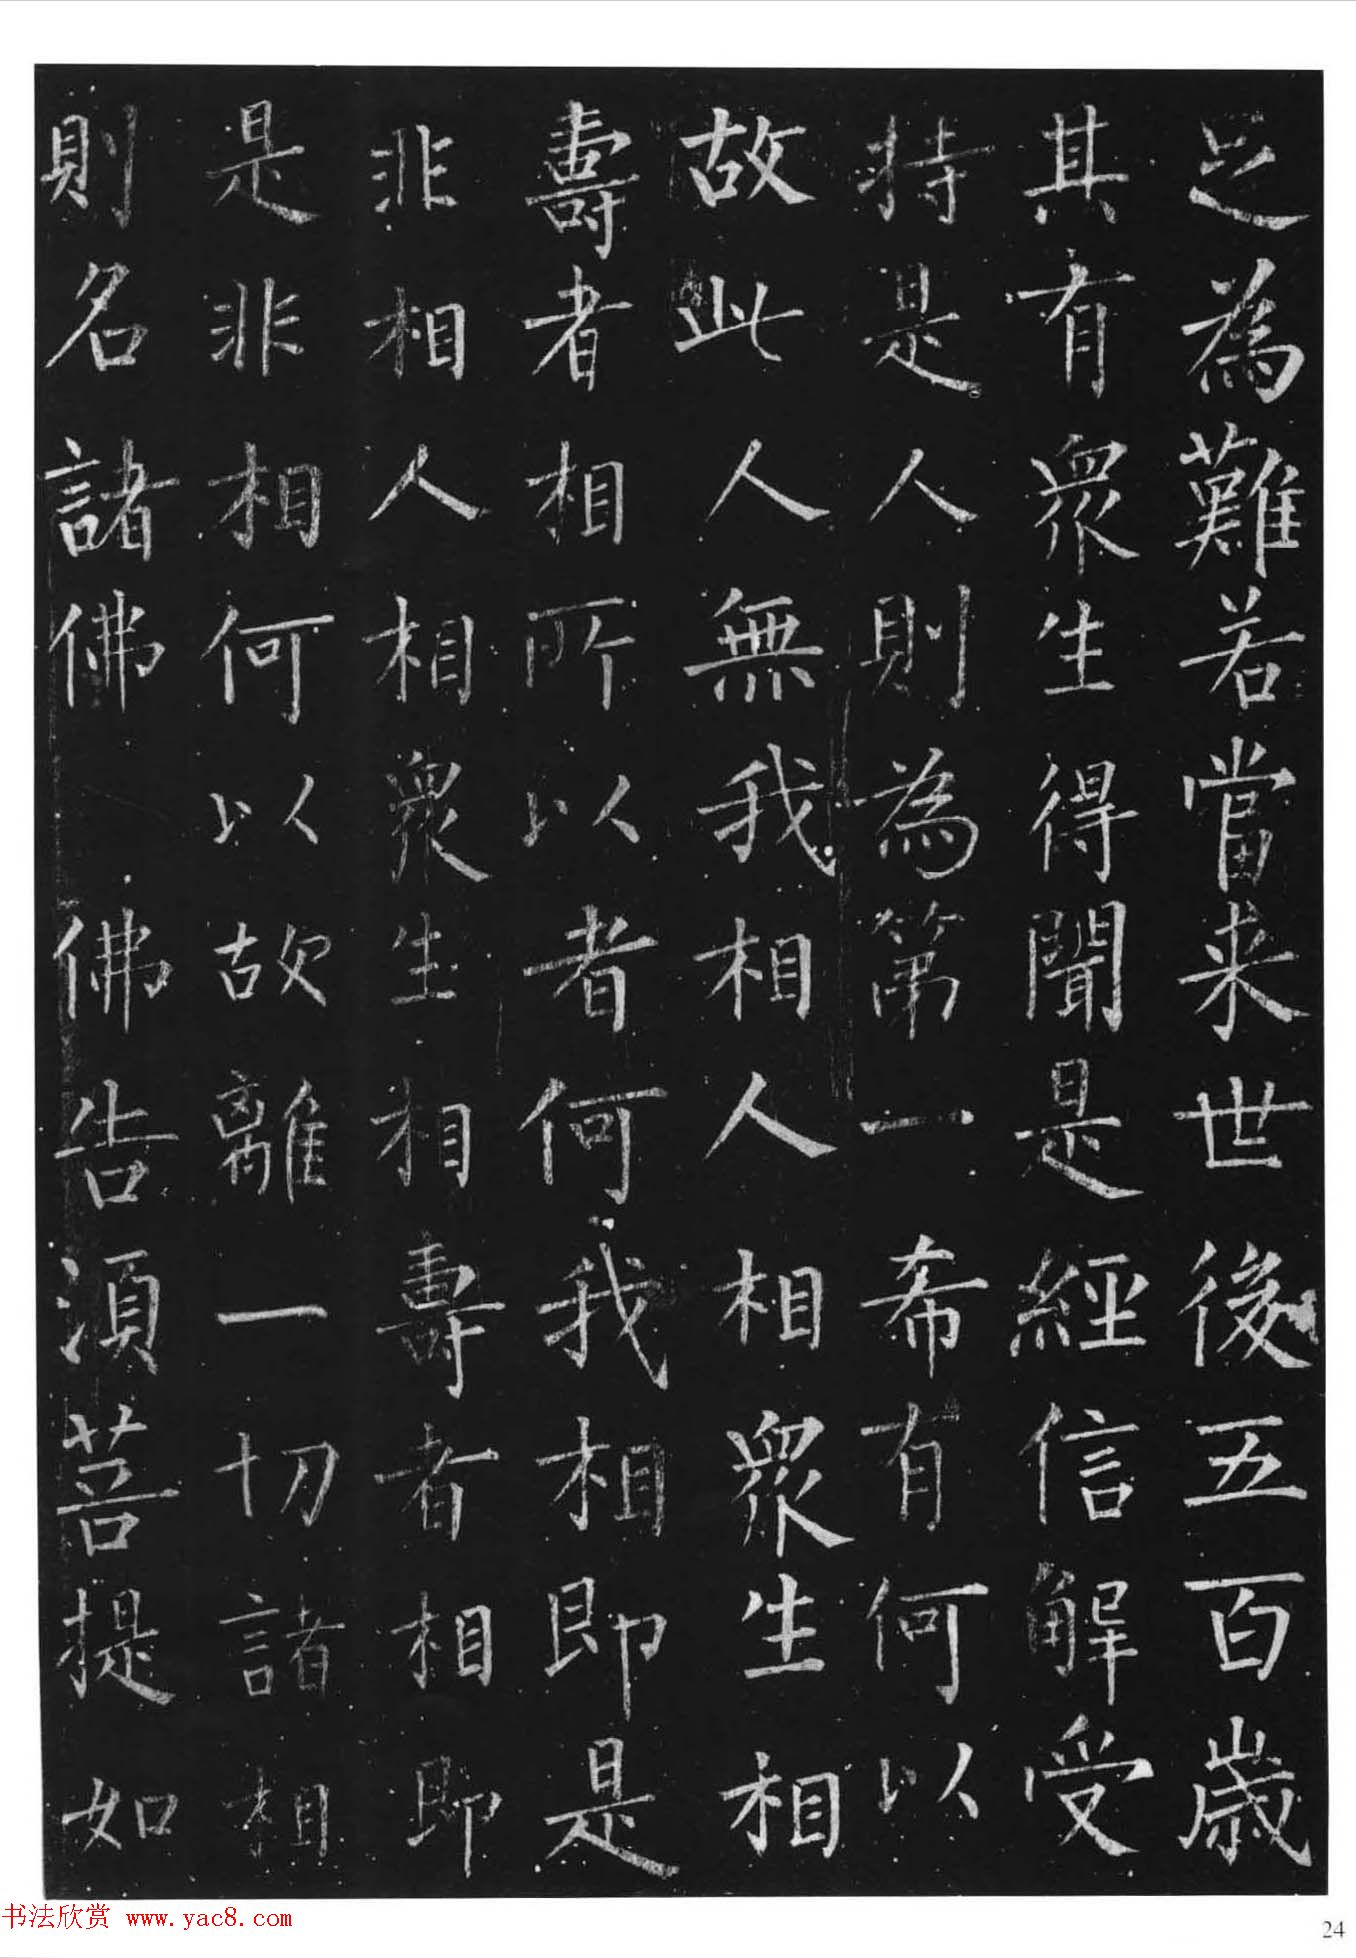 足為難若當来世後五百歲
其有眾生得聞是經信解受
持是人則為第一希有何以
故此人無我相人相眾生相
壽者相所以者何我相即是
非相人相眾生相壽者相即
是非相何以故離一切諸相
則名諸佛佛告須菩提如
书法欣赏 www.yac8.com
24